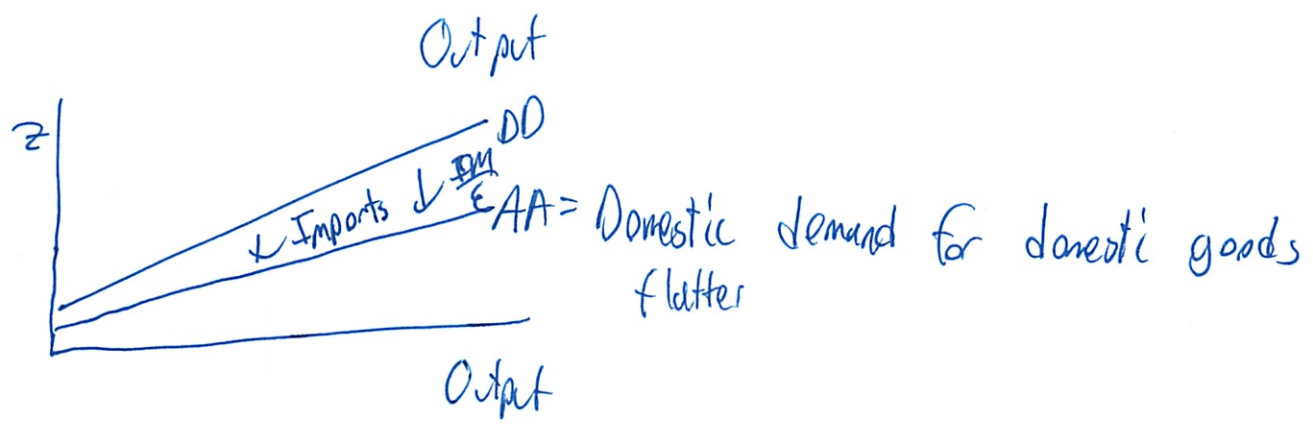 Output
Z
DD
↓ Imports ↓ IM/ε
AA = Domestic demand for domesti goods
flatter
Output